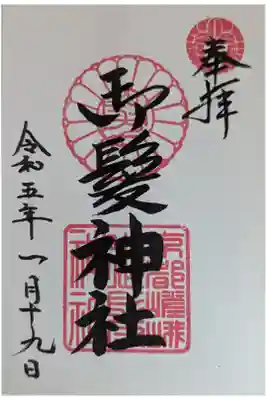 奉拝
御髪神社
令和五年一月十九日